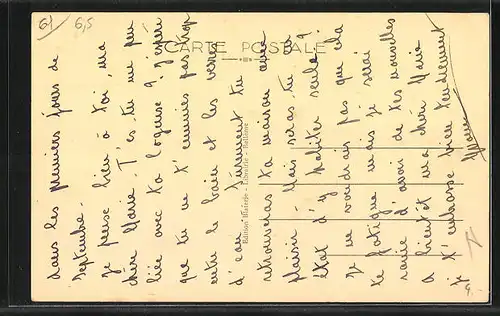 61 6,5
CARTE POSTALE
dans les premiers jours de
septembre.
Je pense bien à toi, ma
chère Marie. T'es-tu un peu
liée avec ta logeuse ? J'espère
que tu ne t'ennuies pas trop
entre le bain et les verres
d'eau. Sûrement tu
retrouveras ta maison avec
plaisir Mais seras-tu en
état d'y habiter seule ?
Je ne voudrais pas que cela
te fatigue mais je serai
ravie d'avoir de tes nouvelles
A bientôt ma chère Marie
je t'embrasse bien tendrement
Edition Blaterje - Librairie - Bellême